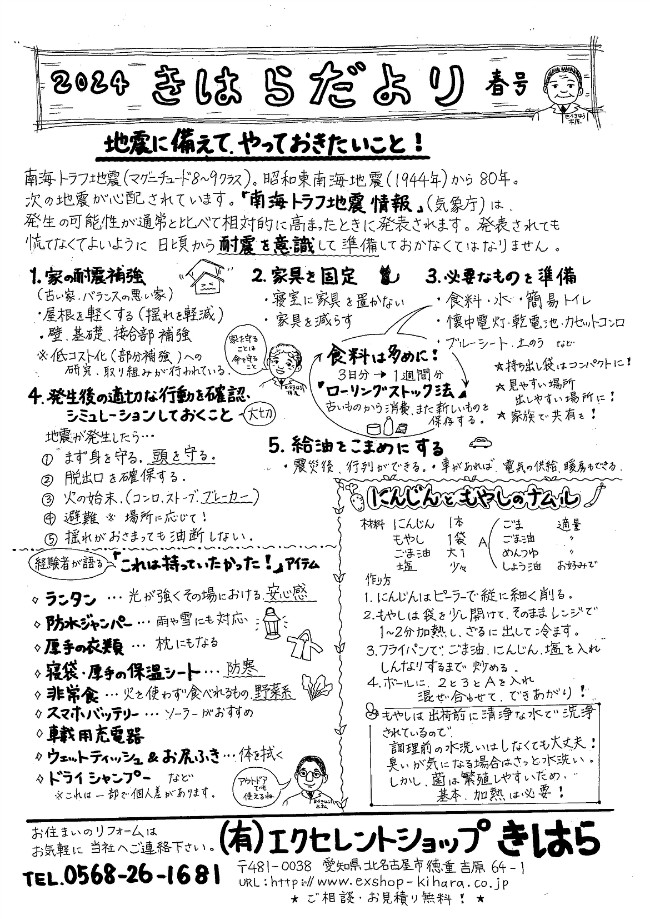 2024 きはらだより 春号
地震に備えて、やっておきたいこと！
南海トラフ地震(マグニチュード8〜9クラス)。昭和東南海地震(1944年)から80年。
次の地震が心配されています。「南海トラフ地震情報」(気象庁)は、
発生の可能性が通常と比べて相対的に高まったときに発表されます。発表されても
慌てなくてよいように 日頃から耐震を意識して準備しておかなくてはなりません。
1.家の耐震補強
(古い家、バランスの悪い家)
・屋根を軽くする(揺れを軽減)
・壁、基礎、接合部補強
※低コスト化(部分補強)への
研究、取り組みが行われている。
家を守る
ことは
命を守る
こと
2.家具を固定
・寝室に家具を置かない
・家具を減らす
3.必要なものを準備
・食料・水・簡易トイレ
・懐中電灯・乾電池・カセットコンロ
・ブルーシート、土のう など
食料は多めに！
3日分→1週間分
「ローリングストック法」
古いものから消費、また新しいものを
保存する。
★持ち出し袋はコンパクトに！
★見やすい場所
出しやすい場所に！
★家族で共有を！
4.発生後の適切な行動を確認、
シミュレーションしておくこと 大切
地震が発生したら…
① まず身を守る、頭を守る。
② 脱出口を確保する。
③ 火の始末、(コンロ、ストーブ、ブレーカー)
④ 避難 ※場所に応じて！
⑤ 揺れがおさまっても油断しない。
5.給油をこまめにする
・震災後、行列ができる。・車があれば、電気の供給、暖房もできる。
経験者が語る「これは持っていたかった！」アイテム
◇ランタン…光が強くその場における安心感
◇防水ジャンパー…雨や雪にも対応
◇厚手の衣類…枕にもなる
◇寝袋・厚手の保温シート…防寒
◇非常食…火を使わず食べれるもの、野菜系
◇スマホバッテリー…ソーラーがおすすめ
◇車載用充電器
◇ウェットティッシュ&お尻ふき…体を拭く
◇ドライシャンプー など
※これは一部で個人差があります。
アウトドア
でも
使えるね
にんじんともやしのナムル
材料 にんじん 1本
もやし 1袋
ごま油 大1
塩 少々
A ごま 適量
ごま油 〃
めんつゆ 〃
しょう油 お好みで
作り方
1.にんじんはピーラーで縦に細く削る。
2.もやしは袋を少し開けて、そのままレンジで
1〜2分加熱し、ざるに出して冷ます。
3.フライパンで、ごま油、にんじん、塩を入れ
しんなりするまで炒める。
4.ボールに、2と3とAを入れ
混ぜ合わせて、できあがり！
もやしは出荷前に清浄な水で洗浄
されているので
調理前の水洗いはしなくても大丈夫！
臭いが気になる場合はさっと水洗い。
しかし、菌は繁殖しやすいため、
基本、加熱は必要！
お住まいのリフォームは
お気軽に当社へご連絡下さい。
(有)エクセレントショップ きはら
TEL.0568-26-1681
〒481-0038 愛知県北名古屋市徳重吉原64-1
URL:http://www.exshop-kihara.co.jp
★ご相談・お見積り無料！★